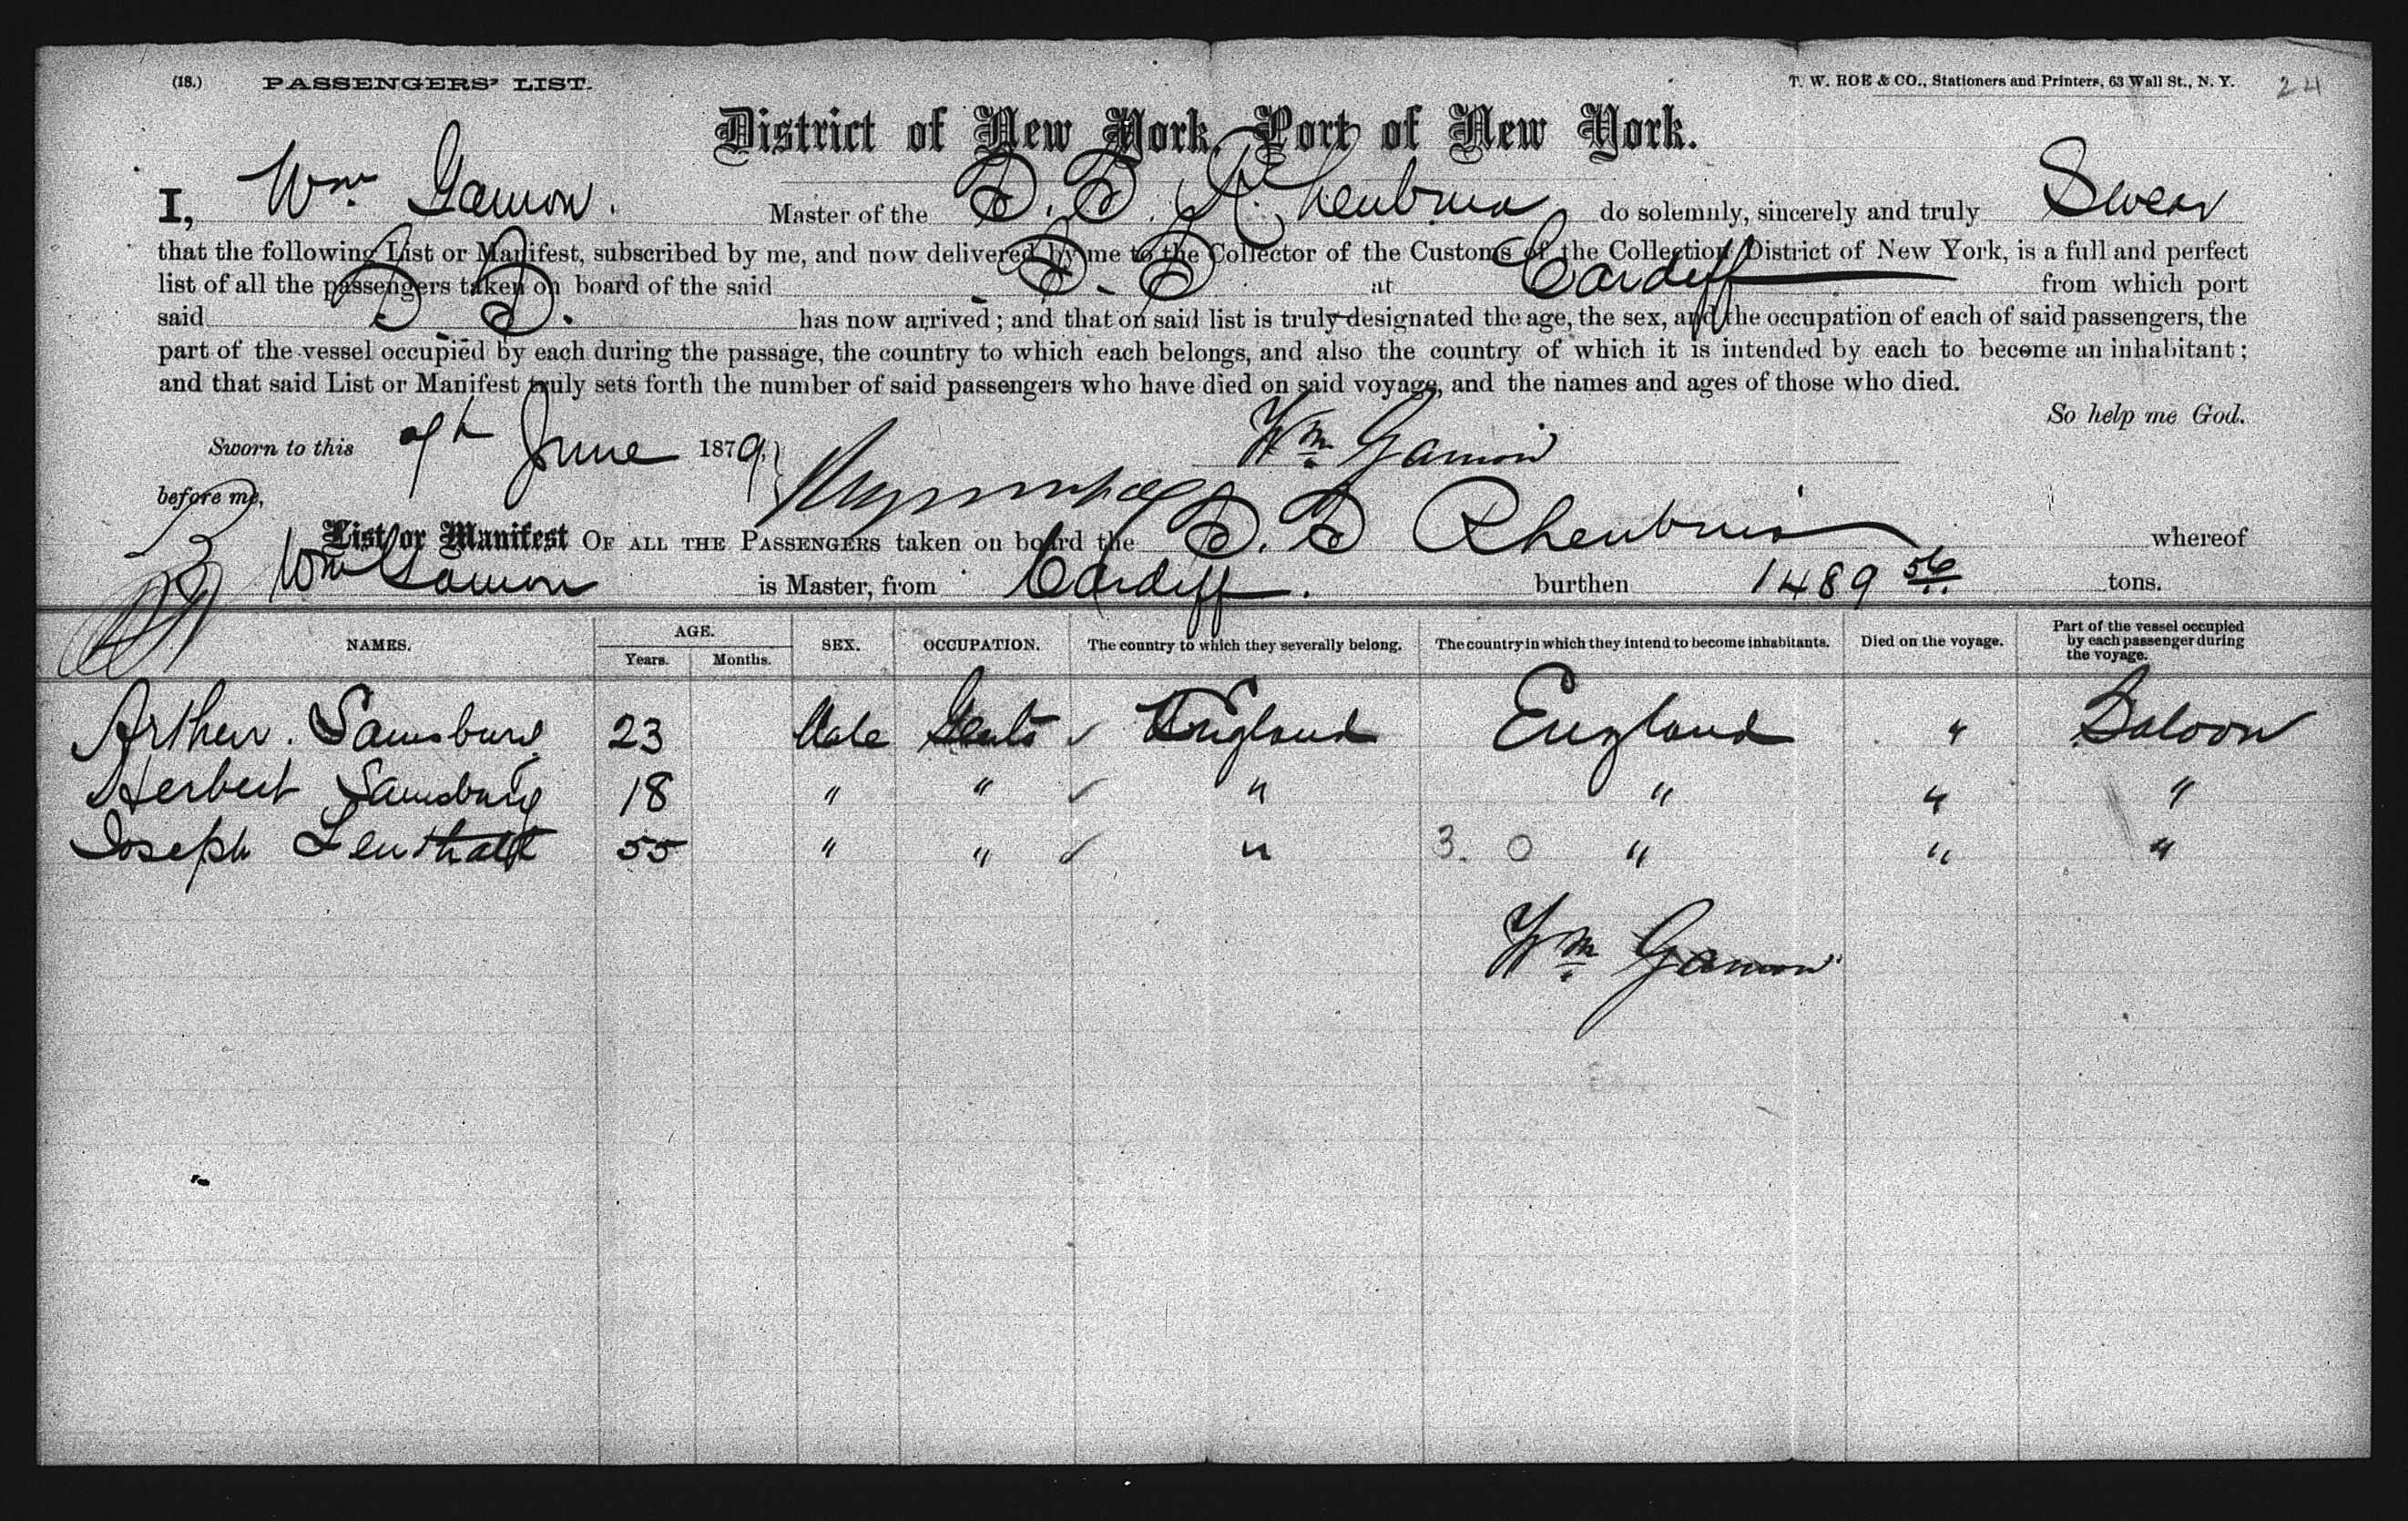 (18.) PASSENGERS' LIST. T. W. ROE & CO., Stationers and Printers, 63 Wall St., N. Y. 24
District of New York, Port of New York.
I, Wm Gamon. Master of the S. S. Rhenbina do solemnly, sincerely and truly Swear
that the following List or Manifest, subscribed by me, and now delivered by me to the Collector of the Customs of the Collection District of New York, is a full and perfect
list of all the passengers taken on board of the said S. S at Cardiff from which port
said S. S. has now arrived; and that on said list is truly designated the age, the sex, and the occupation of each of said passengers, the
part of the vessel occupied by each during the passage, the country to which each belongs, and also the country of which it is intended by each to become an inhabitant;
and that said List or Manifest truly sets forth the number of said passengers who have died on said voyage, and the names and ages of those who died.
So help me God.
Sworn to this 9th June 1879, Wm Gamon
before me,
List or Manifest OF ALL THE PASSENGERS taken on board the S. S Rhenbina whereof
Wm Gamon is Master, from Cardiff. burthen 1489 56 tons.
NAMES. AGE. Years. Months. SEX. OCCUPATION. The country to which they severally belong. The country in which they intend to become inhabitants. Died on the voyage. Part of the vessel occupied by each passenger during the voyage.
Arthur. Sainsbury 23 Male Gents ✓ England England " Saloon
Herbert Sainsbury 18 " " ✓ " " " "
Joseph Lenthall 55 " " ✓ " 3. 0 " " "
Wm Gamon